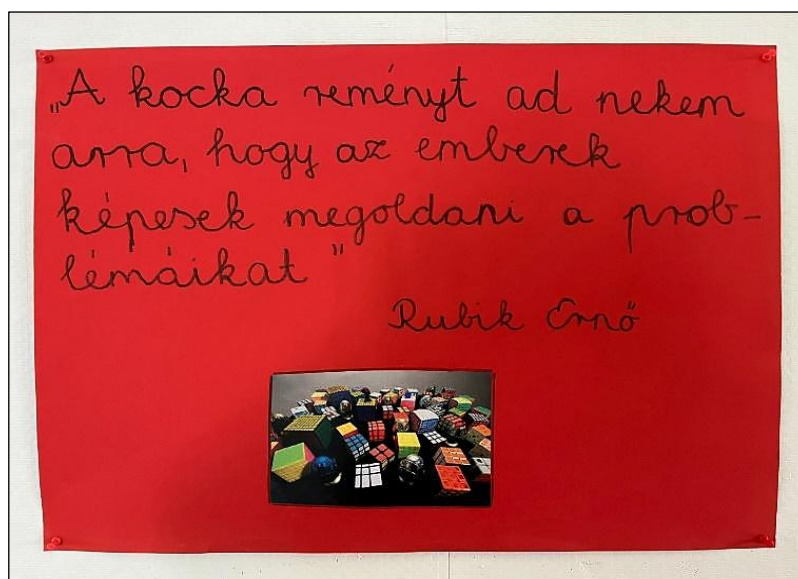 „A kocka reményt ad nekem
arra, hogy az emberek
képesek megoldani a prob-
lémáikat"
Rubik Ernő